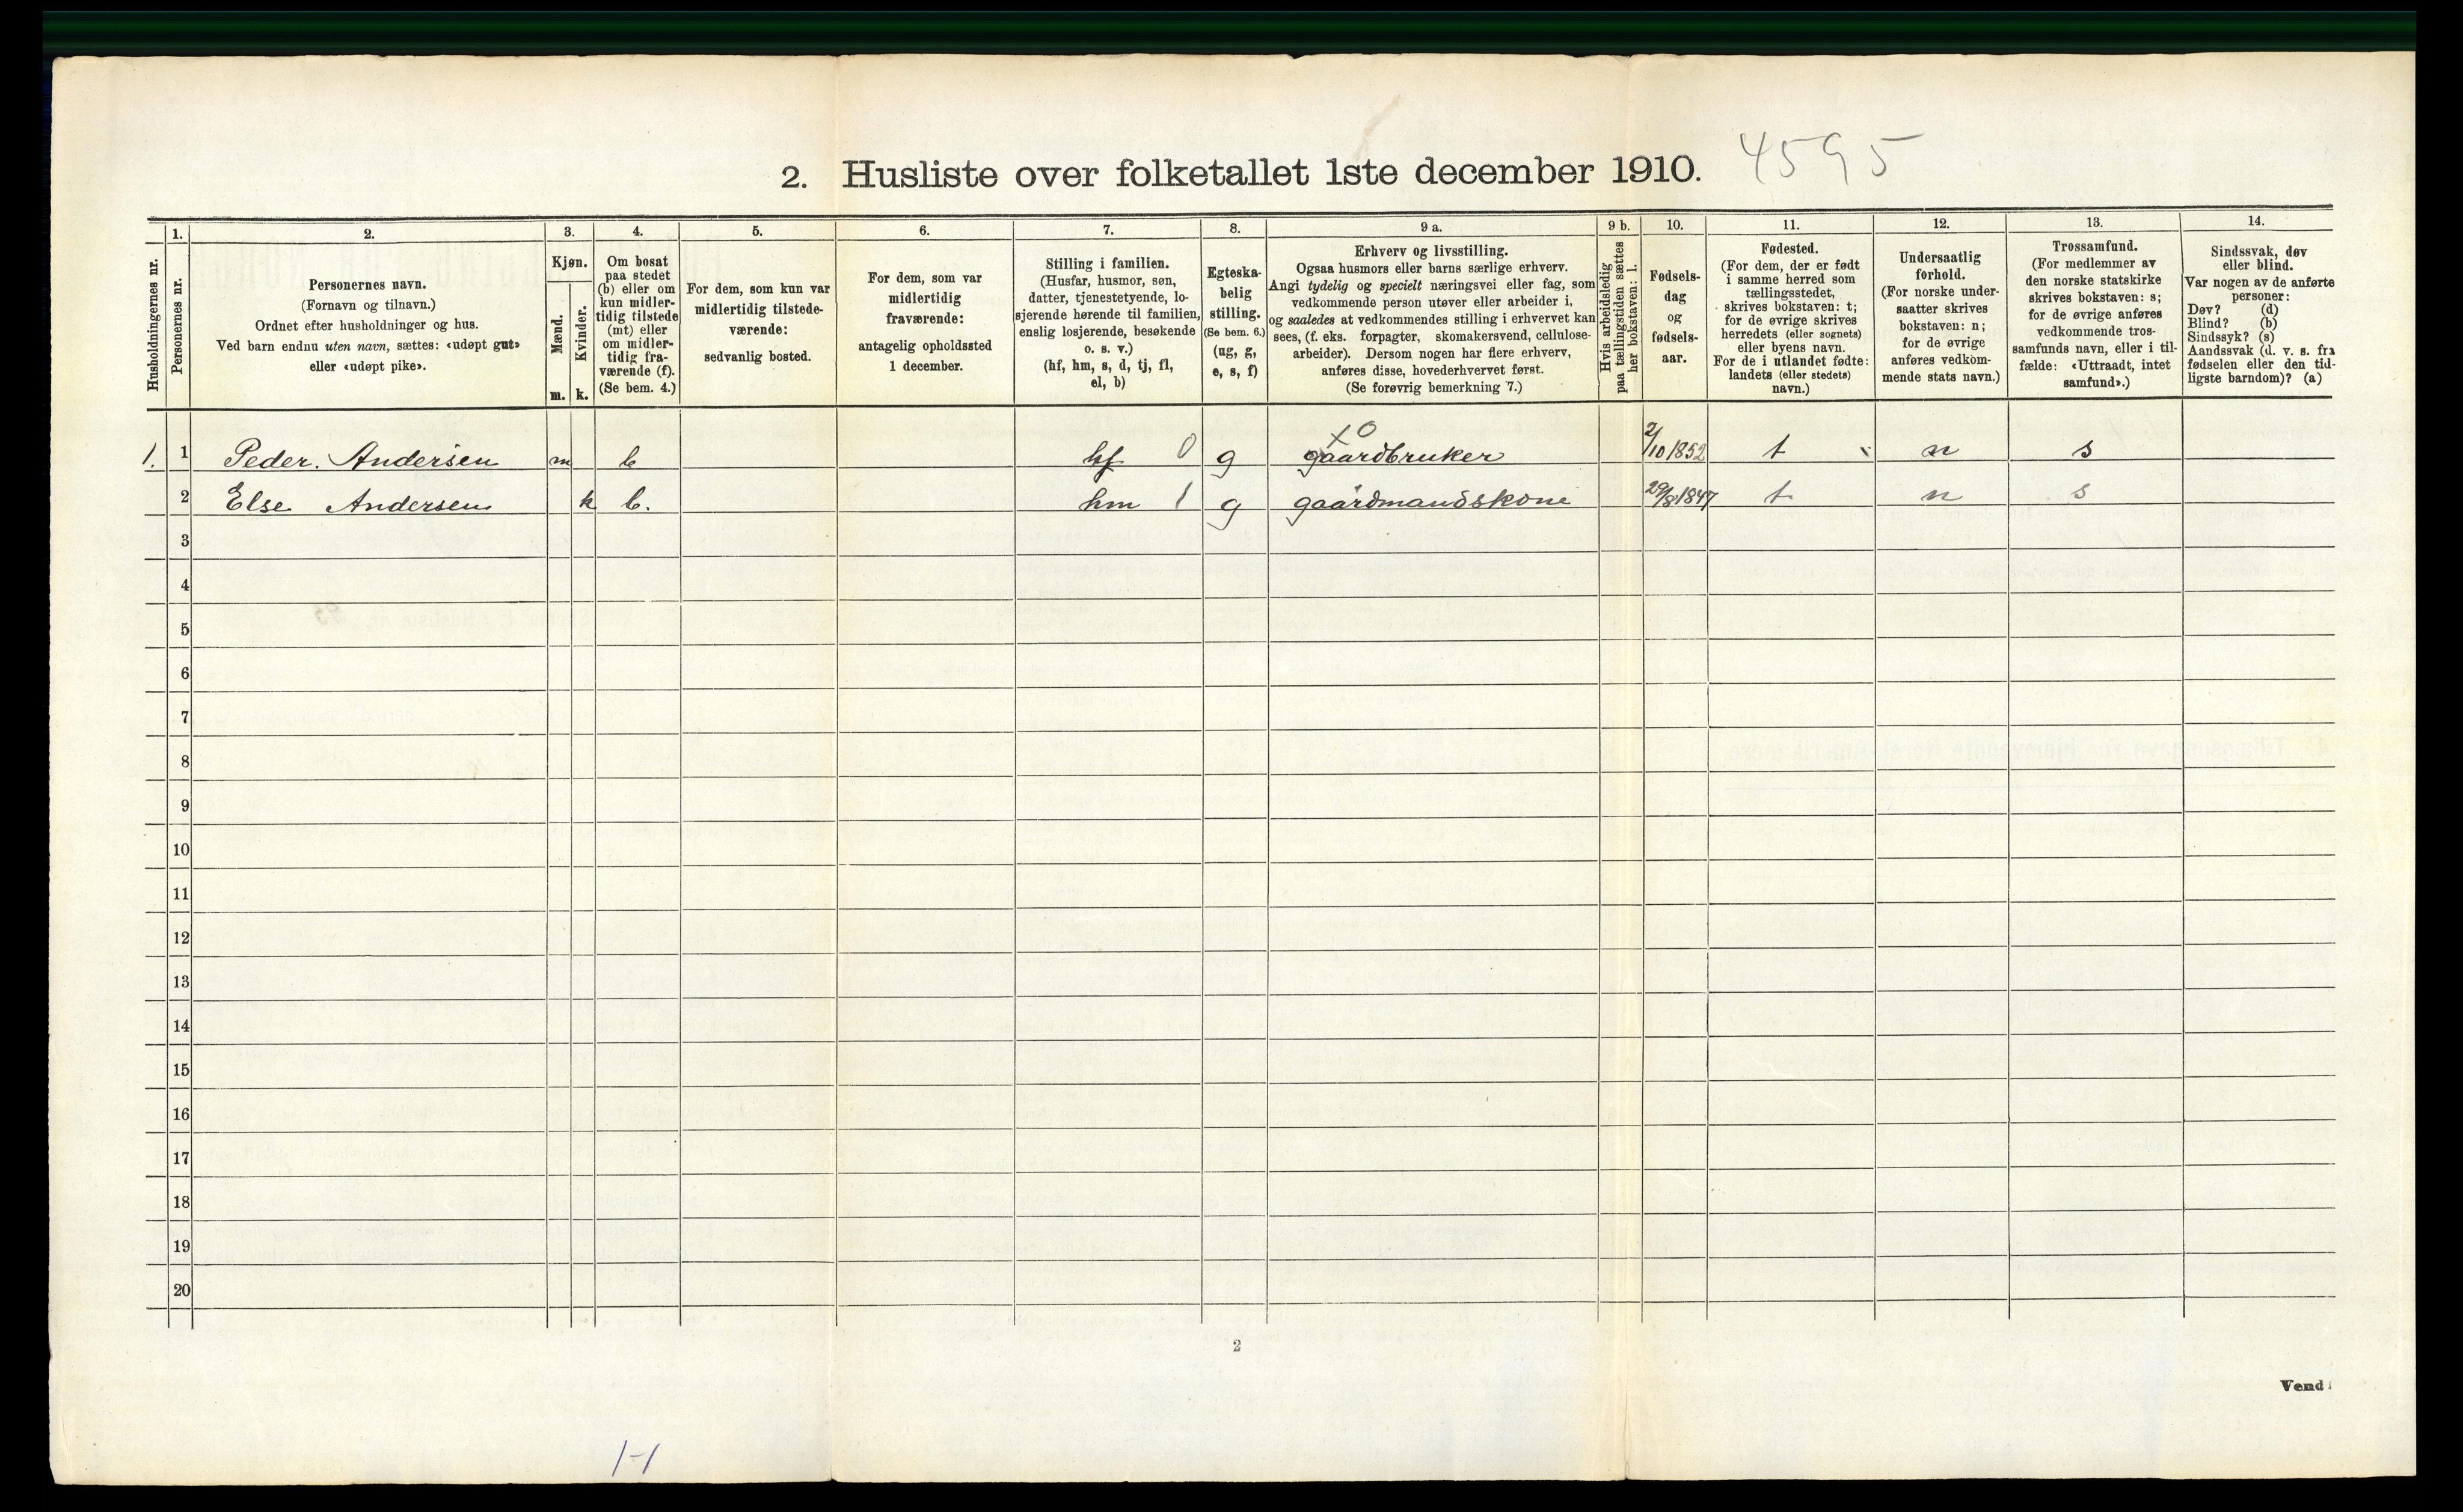 2. Husliste over folketallet 1ste december 1910. 4595
Husholdningernes nr.
1.
Personernes nr.
2.
Personernes navn.
(Fornavn og tilnavn.)
Ordnet efter husholdninger og hus.
Ved barn endnu uten navn, sættes: «udøpt gut»
eller «udøpt pike».
3.
Kjøn.
Mænd.
Kvinder.
m. k.
4.
Om bosat
paa stedet
(b) eller om
kun midler-
tidig tilstede
(mt) eller
om midler-
tidig fra-
værende (f).
(Se bem. 4.)
5.
For dem, som kun var
midlertidig tilstede-
værende:
sedvanlig bosted.
6.
For dem, som var
midlertidig
fraværende:
antagelig opholdssted
1 december.
7.
Stilling i familien.
(Husfar, husmor, søn,
datter, tjenestetyende, lo-
sjerende hørende til familien,
enslig losjerende, besøkende
o. s. v.)
(hf, hm, s, d, tj, fl,
el, b)
8.
Egteska-
belig
stilling.
(Se bem. 6.)
(ug, g,
e, s, f)
9 a.
Erhverv og livsstilling.
Ogsaa husmors eller barns særlige erhverv.
Angi tydelig og specielt næringsvei eller fag, som
vedkommende person utøver eller arbeider i,
og saaledes at vedkommendes stilling i erhvervet kan
sees, (f. eks. forpagter, skomakersvend, cellulose-
arbeider). Dersom nogen har flere erhverv,
anføres disse, hovederhvervet først.
(Se forøvrig bemerkning 7.)
9 b.
Hvis arbeidsledig
paa tællingstiden sættes
her bokstaven: l.
10.
Fødsels-
dag
og
fødsels-
aar.
11.
Fødested.
(For dem, der er født
i samme herred som
tællingsstedet,
skrives bokstaven: t;
for de øvrige skrives
herredets (eller sognets)
eller byens navn.
For de i utlandet fødte:
landets (eller stedets)
navn.)
12.
Undersaatlig
forhold.
(For norske under-
saatter skrives
bokstaven: n;
for de øvrige
anføres vedkom-
mende stats navn.)
13.
Trossamfund.
(For medlemmer av
den norske statskirke
skrives bokstaven: s;
for de øvrige anføres
vedkommende tros-
samfunds navn, eller i til-
fælde: «Uttraadt, intet
samfund».)
14.
Sindssvak, døv
eller blind.
Var nogen av de anførte
personer:
Døv? (d)
Blind? (b)
Sindssyk? (s)
Aandssvak (d. v. s. fra
fødselen eller den tid-
ligste barndom)? (a)
x 0
1. 1 Peder. Andersen m b hf 0 g gaardbruker 2/10 1852 t n s
2 Else Andersen k b. hm 1 g gaardmandskone 29/8 1847 t n s
3
4
5
6
7
8
9
10
11
12
13
14
15
16
17
18
19
20
2
Vend
1-1